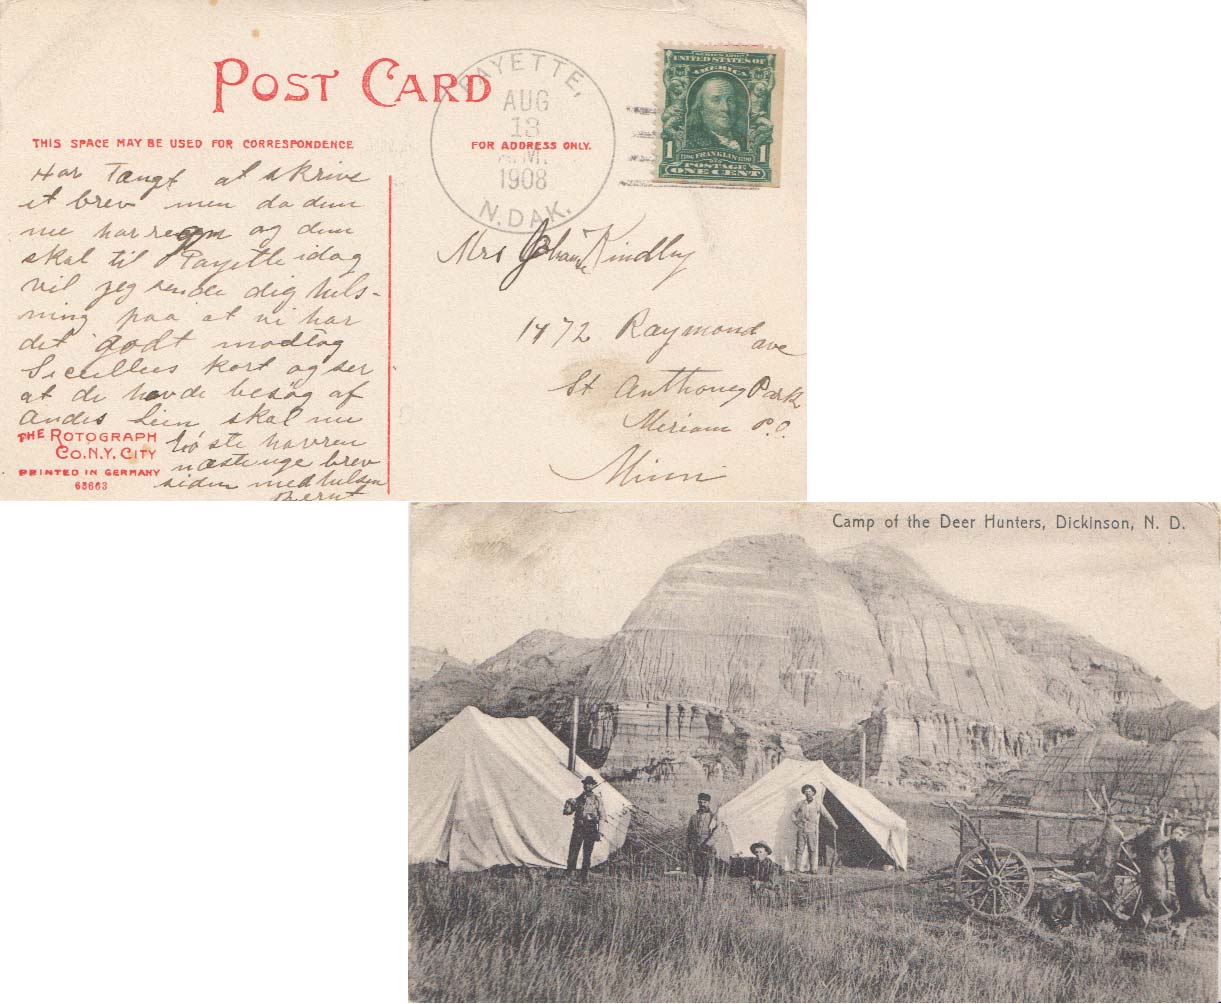 POST CARD
THIS SPACE MAY BE USED FOR CORRESPONDENCE
FOR ADDRESS ONLY.
FAYETTE,
AUG
13
A.M.
1908
N.DAK.
SERIES 1902
UNITED STATES OF
AMERICA
1 FRANKLIN 1
POSTAGE
ONE CENT
Har Tængt at skrive
et brev men da dem
nu har regn og dem
skal til Fayette idag
vil jeg sende dig hils-
ning paa at vi har
det godt modtog
kort og ser
at de havde besøg af
skal nu
havren
næste uge brev
siden med hilsen
Bernt
THE ROTOGRAPH
CO. N.Y. CITY
PRINTED IN GERMANY
Mrs Kindley
1472 Raymond
ave
St Anthony Park
Meriam P.O.
Minn
Camp of the Deer Hunters, Dickinson, N. D.